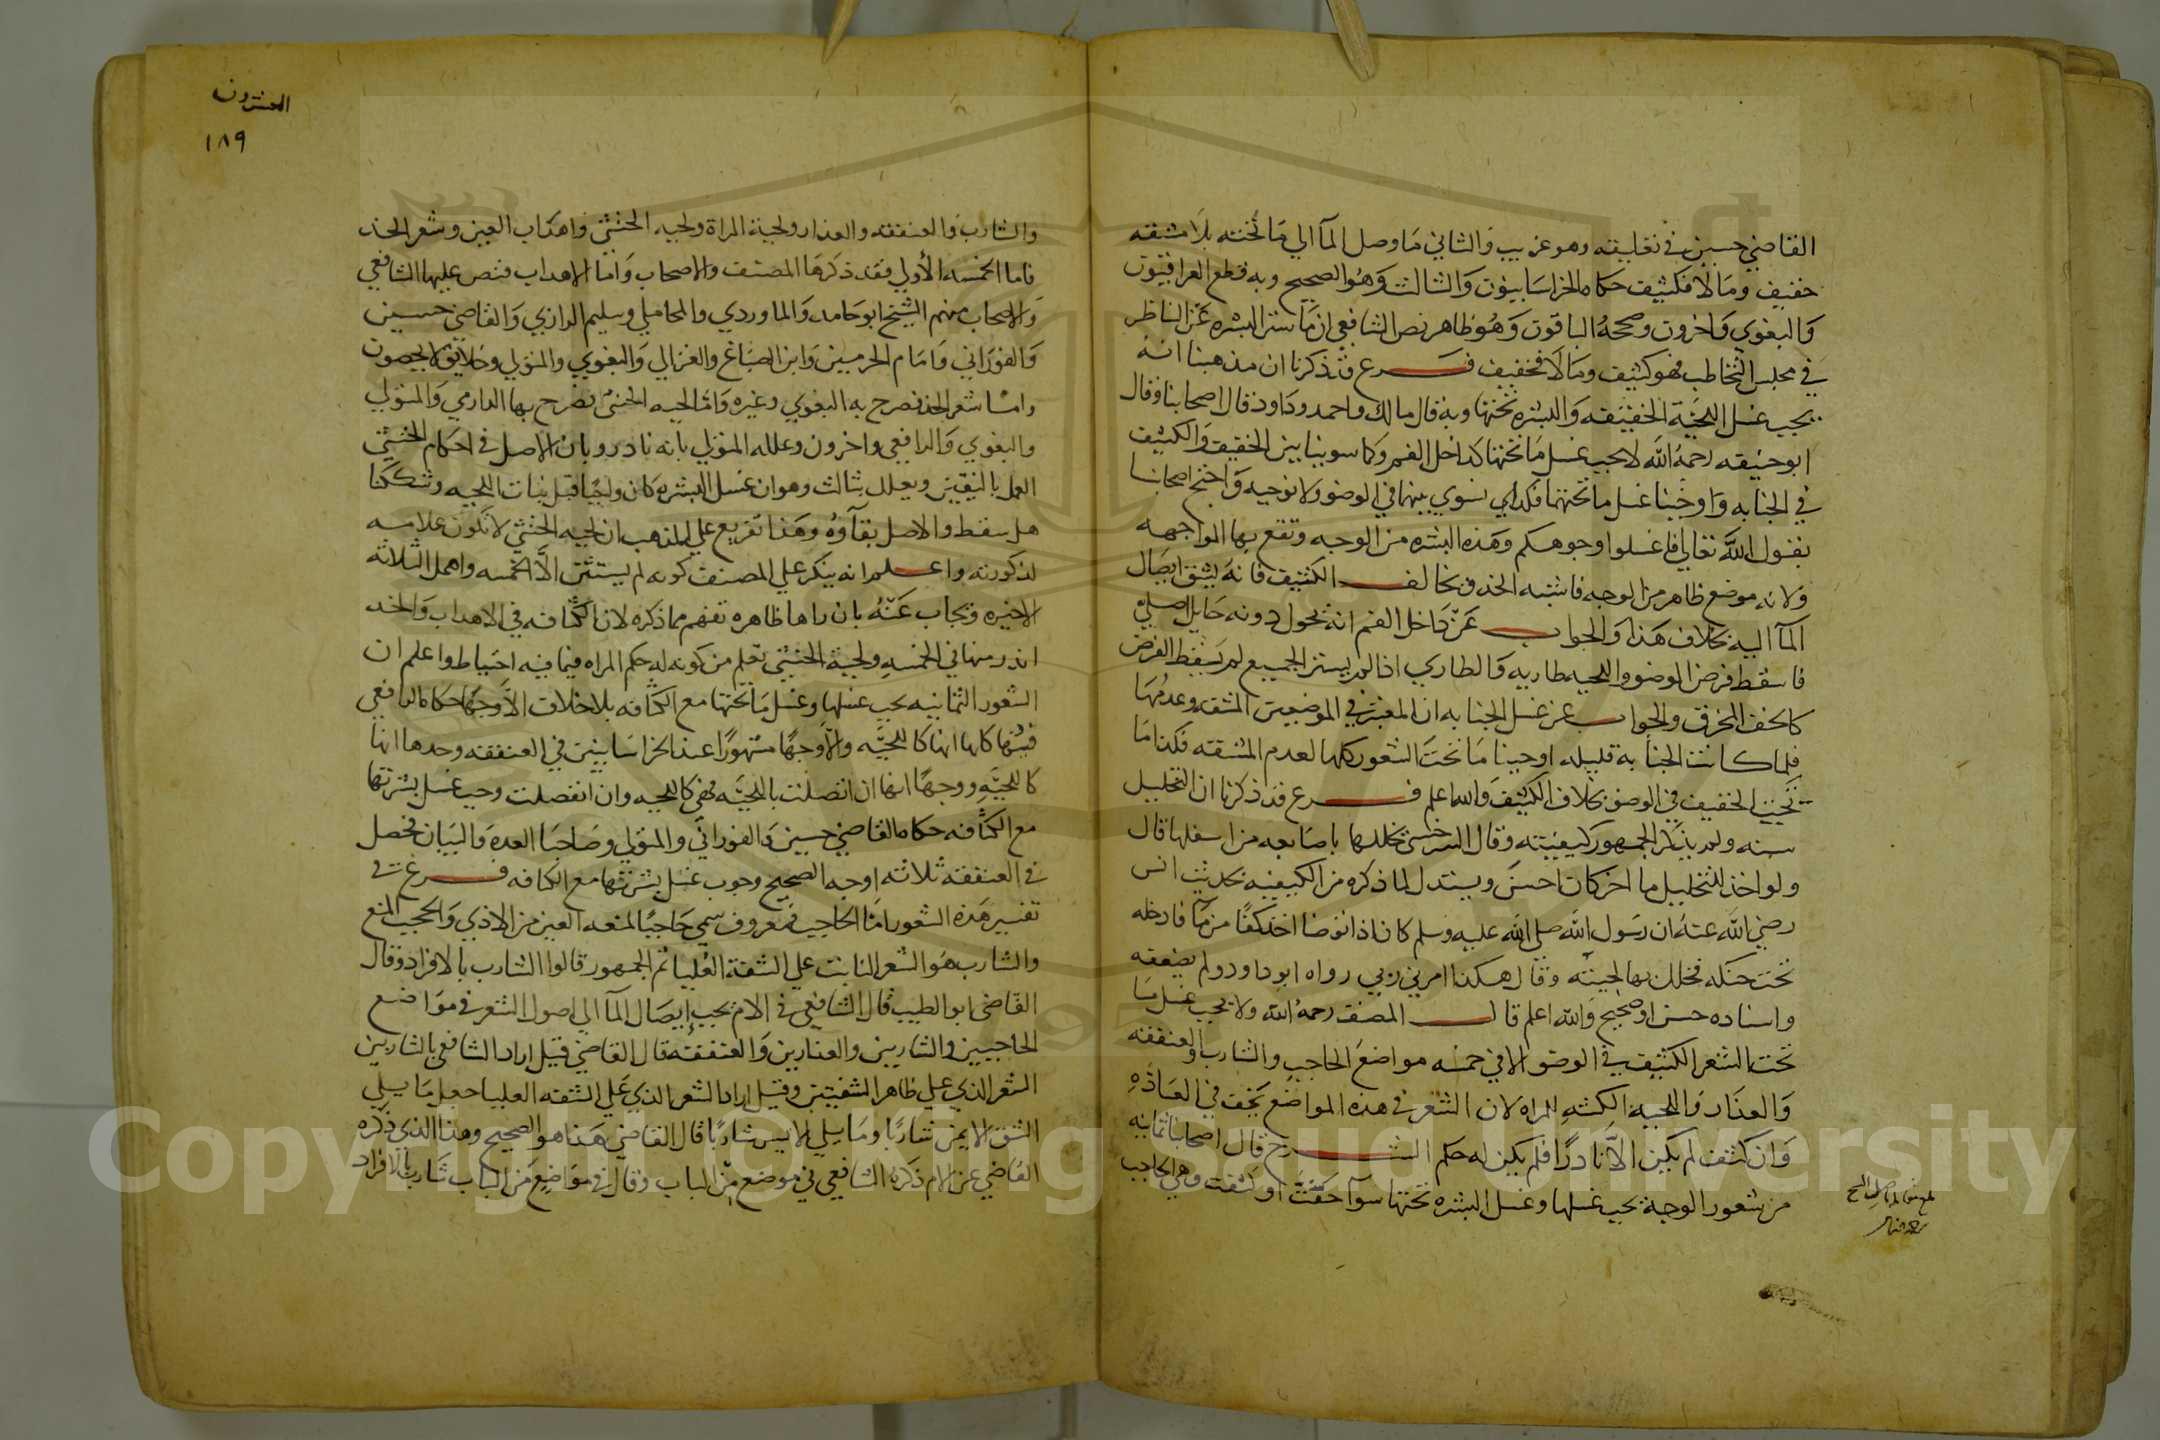 القاضي حسين في تعليقه وهو غريب والثاني ما وصل المآ الي ما تحته بلا مشقه
خفيف وما لا فكثيف حكاه الخراسانيون والثالث وهو الصحيح وبه قطع العراقيون
والبغوي واخرون وصححه الباقون وهو ظاهر نص الشافعي ان ما ستر البشره عن الناظر
في مجلس التخاطب فهو كثيف وما لا فخفيف فرع قد ذكرنا ان مذهبنا انه
يجب غسل اللحية الخفيفه والبشره تحتها وبه قال مالك واحمد وداود قال اصحابنا وقال
ابو حنيفه رحمه الله لا يجب غسل ما تحتها كداخل الفم وكما سوينا بين الخفيف والكثيف
في الجنابه واوجبنا غسل ما تحتهما فكذلك نسوي بينهما في الوضو ولا نوجبه واحتج اصحابنا
بقول الله تعالي فاغسلوا وجوهكم وهذه البشره من الوجه وتقع بها المواجهه
ولانه موضع ظاهر من الوجه فاشبه الخد ويخالف الكثيف فانه يشق ايصال
المآ اليه بخلاف هذا والجواب عن داخل الفم انه يحول دونه حايل اصلي
فاسقط فرض الوضو واللحيه طاريه والطاري اذا لم يستر الجميع لم يسقط الفرض
كالخف المخرق والجواب عن غسل الجنابه ان المعتبر في الموضعين المشقه وعدمها
فلما كانت الجنابة قليله اوجبنا ما تحت الشعور كلها لعدم المشقه فكذا ما
تحت الخفيف في الوضو بخلاف الكثيف والله اعلم فرع قد ذكرنا ان التخليل
سنه ولم يذكر الجمهور كيفيته وقال السرخسي يخللها باصابعه من اسفلها قال
ولو اخذ للتخليل ما اخر كان احسن ويستدل لما ذكره من الكيفيه بحديث انس
رضي الله عنه ان رسول الله صلي الله عليه وسلم كان اذا توضا اخذ كفا من ما فادخله
تحت حنكه فخلل بها لحيته وقال هكذا امرني ربي رواه ابو داود ولم يضعفه
واسناده حسن او صحيح والله اعلم قال المصنف رحمه الله ولا يجب غسل ما
تحت الشعر الكثيف في الوضو الا في خمسه مواضع الحاجب والشارب والعنفقه
والعذار واللحيه الكثه للمراه لان الشعر في هذه المواضع يخف في العاده
وان كثف لم يكن الا نادرا فلم يكن له حكم الشرح قال اصحابنا ثمانيه
من شعور الوجه يجب غسلها وغسل البشره تحتها سوآ خفت او كثفت وهي الحاجب
العشرون
١٨٩
والشارب والعنفقه والعذار ولحية المراة ولحيه الخنثي واهداب العين وشعر الخد
فاما الخمسه الأولي فقد ذكرها المصنف والاصحاب واما الاهداب فنص عليها الشافعي
والاصحاب منهم الشيخ ابو حامد والماوردي والمحاملي وسليم الرازي والقاضي حسين
والفوراني وامام الحرمين وابن الصباغ والغزالي والبغوي والمتولي وخلايق لا يحصون
واما شعر الخد فصرح به البغوي وغيره واما لحيه الخنثي فصرح بها الدارمي والمتولي
والبغوي والرافعي واخرون وعلله المتولي بانه نادر وبان الاصل في احكام الخنثي
العمل باليقين ويعلل بثالث وهو ان غسل البشره كان واجبا قبل نبات اللحيه وشككنا
هل سقط والاصل بقآوه وهذا تفريع علي المذهب ان لحيه الخنثي لا تكون علامه
لذكورته واعلم انه ينكر علي المصنف كونه لم يستثن الا الخمسه واهمل الثلاثه
الاخيره ويجاب عنه بان راها ظاهره تفهم مما ذكره لان الكثافه في الاهداب والخد
اندر منها في الخمسه ولحية الخنثي تعلم من كونه له حكم المراه فيما فيه احتياط واعلم ان
الشعور الثمانيه يجب غسلها وغسل ما تحتها مع الكثافه بلا خلاف الا وجها حكاه الرافعي
فيها كلها انها كاللحيه والا وجها مشهورا عند الخراسانيين في العنفقه وحدها انها
كاللحيه ووجها انها ان اتصلت باللحيه فهي كاللحيه وان انفصلت وجب غسل بشرتها
مع الكثافه حكاه القاضي حسين والفوراني والمتولي وصاحبا العده والبيان فحصل
في العنفقه ثلاثه اوجه الصحيح وجوب غسل بشرتها مع الكثافه فرع في
تفسير هذه الشعور اما الحاجب فمعروف سمي حاجبا لمنعه العين من الاذي والحجب المنع
والشارب هو الشعر النابت علي الشفة العليا ثم الجمهور قالوا الشارب بالافراد وقال
القاضي ابو الطيب قال الشافعي في الام يجب ايصال المآ الي اصول الشعر في مواضع
الحاجبين والشاربين والعذارين والعنفقه قال القاضي قيل اراد الشافعي بالشاربين
الشعر الذي علي ظاهر الشفتين وقيل اراد الشعر الذي علي الشفه العليا جعل ما يلي
الشق الايمن شاربا وما يلي الايسر شاربا قال القاضي هذا هو الصحيح وهذا الذي ذكره
القاضي عن الام ذكره الشافعي في موضع من الباب وقال في مواضع من الباب شارب بالافراد